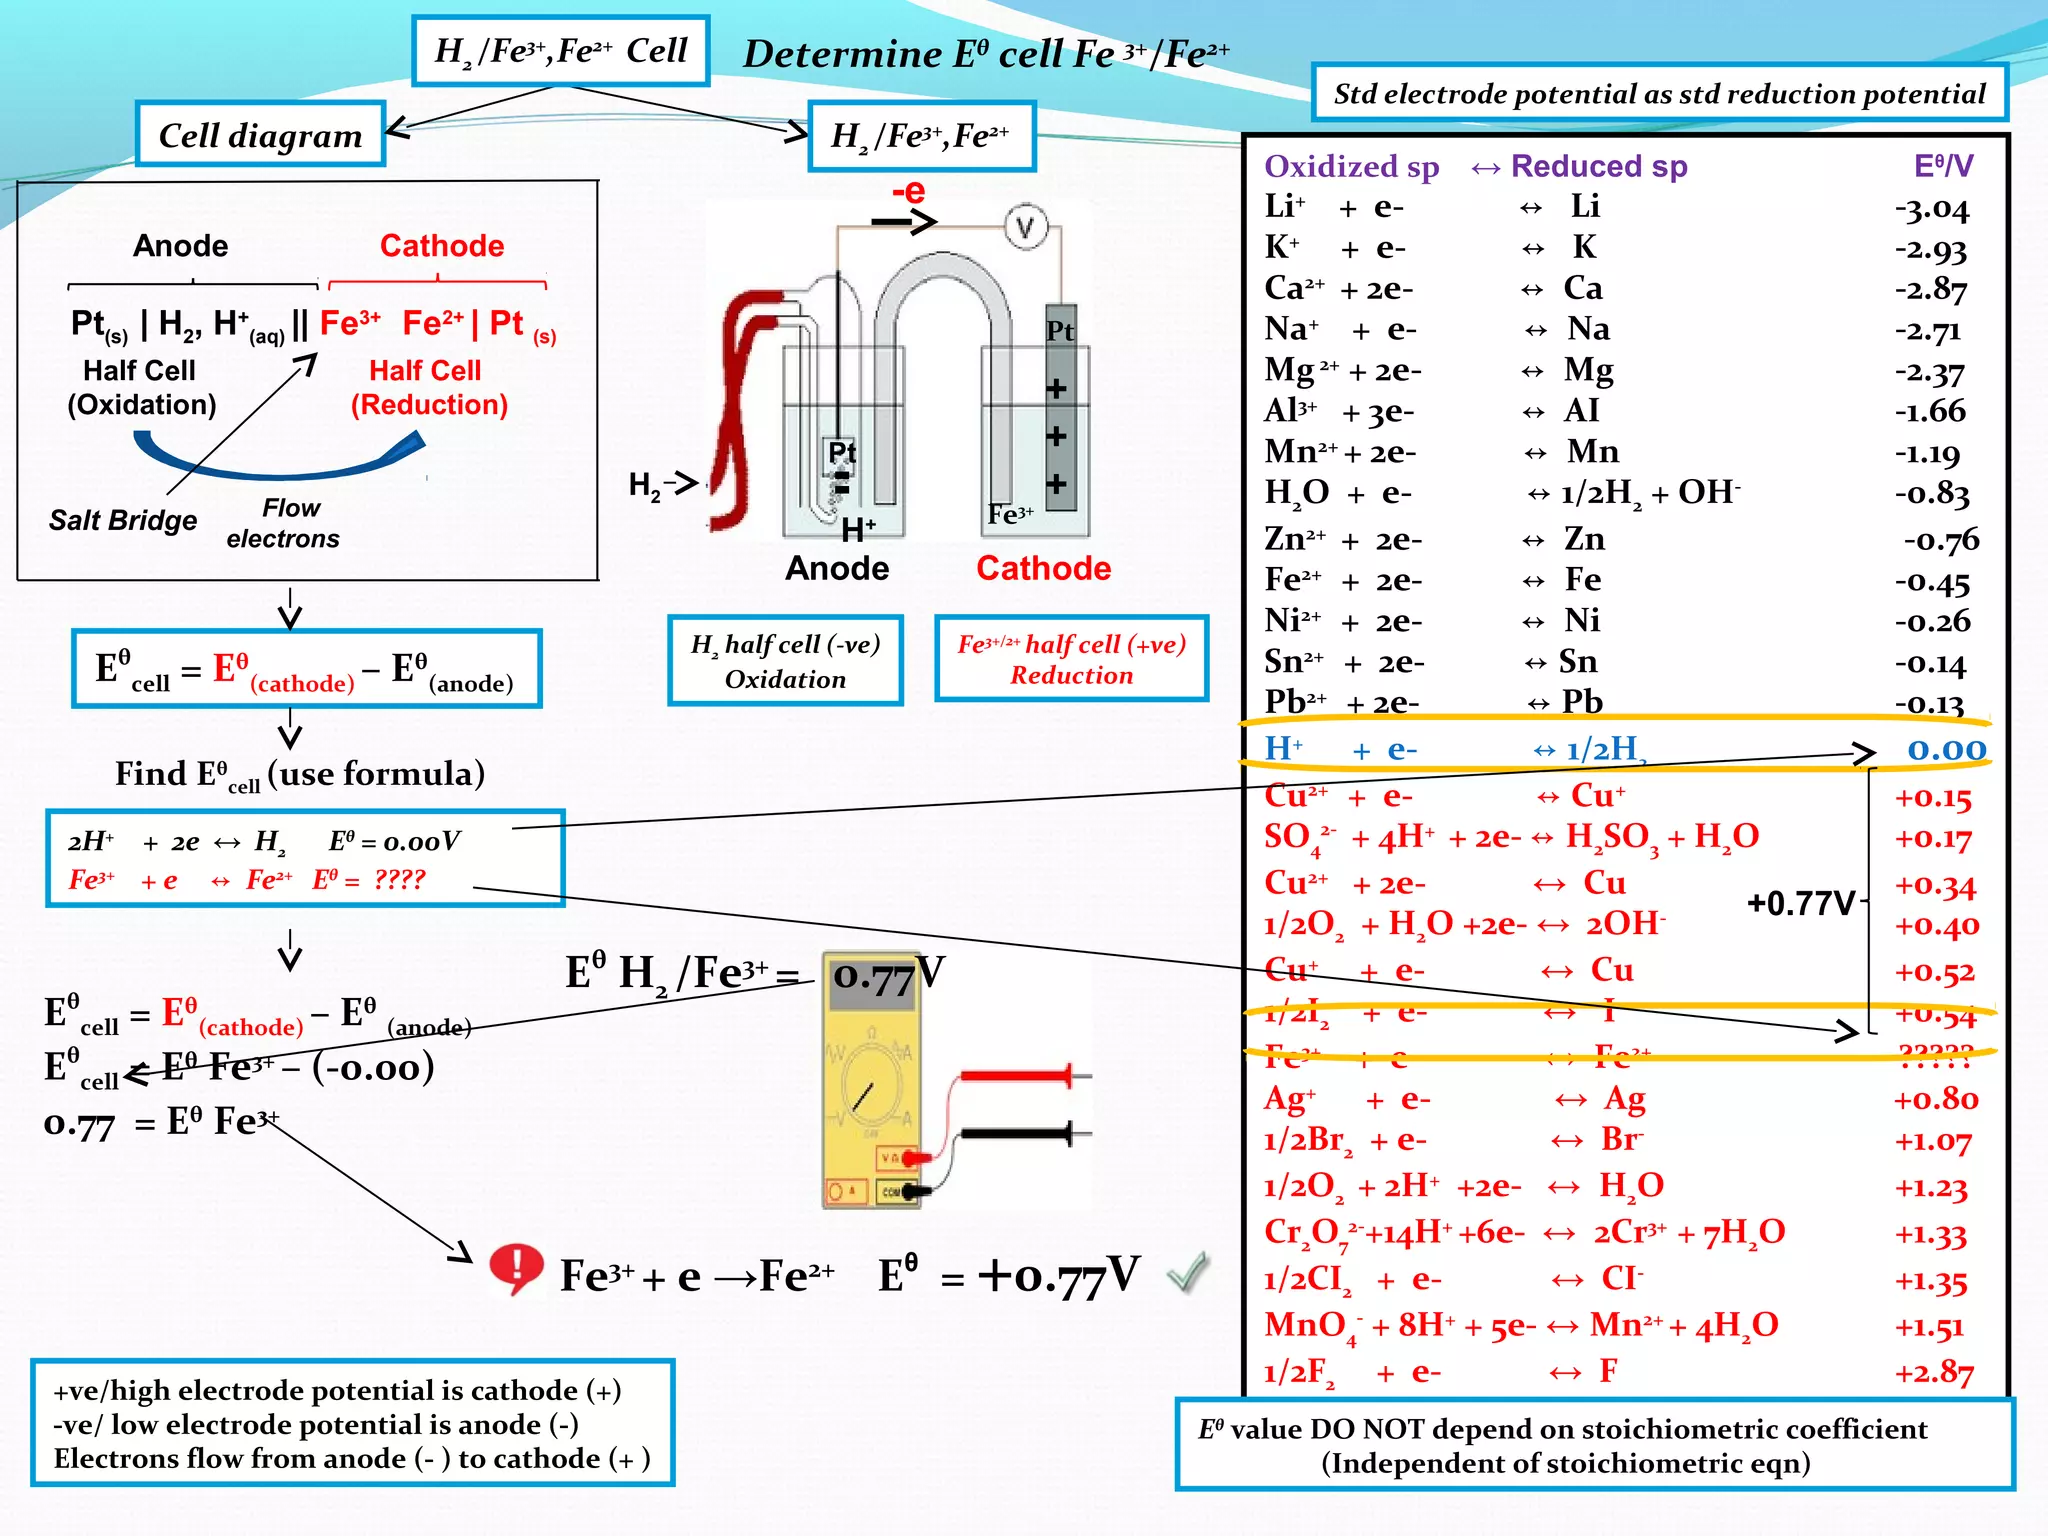 H₂/Fe³⁺,Fe²⁺ Cell
Determine Eᶿ cell Fe ³⁺/Fe²⁺
Std electrode potential as std reduction potential
Cell diagram
H₂/Fe³⁺,Fe²⁺
-e
Anode Cathode
Pt(s) | H₂, H⁺(aq) || Fe³⁺ Fe²⁺ | Pt (s)
Half Cell Half Cell
(Oxidation) (Reduction)
Salt Bridge
Flow
electrons
V
Pt
+
+
+
Pt
-
-
H₂
H⁺
Fe³⁺
Anode Cathode
H₂ half cell (-ve)
Oxidation
Fe³⁺/²⁺ half cell (+ve)
Reduction
Eᶿcell = Eᶿ(cathode) – Eᶿ(anode)
Find Eᶿcell (use formula)
2H⁺ + 2e ↔ H₂ Eᶿ = 0.00V
Fe³⁺ + e ↔ Fe²⁺ Eᶿ = ????
Eᶿcell = Eᶿ(cathode) – Eᶿ (anode)
Eᶿcell = Eᶿ Fe³⁺ – (-0.00)
0.77 = Eᶿ Fe³⁺
Eᶿ H₂/Fe³⁺ = 0.77V
Ω
A
V
A
OFF
V Ω
A
COM
!
Fe³⁺ + e →Fe²⁺ Eᶿ = +0.77V
+ve/high electrode potential is cathode (+)
-ve/ low electrode potential is anode (-)
Electrons flow from anode (- ) to cathode (+ )
Oxidized sp ↔ Reduced sp Eᶿ/V
Li⁺ + e- ↔ Li -3.04
K⁺ + e- ↔ K -2.93
Ca²⁺ + 2e- ↔ Ca -2.87
Na⁺ + e- ↔ Na -2.71
Mg ²⁺ + 2e- ↔ Mg -2.37
Al³⁺ + 3e- ↔ AI -1.66
Mn²⁺ + 2e- ↔ Mn -1.19
H₂O + e- ↔ 1/2H₂ + OH⁻ -0.83
Zn²⁺ + 2e- ↔ Zn -0.76
Fe²⁺ + 2e- ↔ Fe -0.45
Ni²⁺ + 2e- ↔ Ni -0.26
Sn²⁺ + 2e- ↔ Sn -0.14
Pb²⁺ + 2e- ↔ Pb -0.13
H⁺ + e- ↔ 1/2H₂ 0.00
Cu²⁺ + e- ↔ Cu⁺ +0.15
SO₄²⁻ + 4H⁺ + 2e- ↔ H₂SO₃ + H₂O +0.17
Cu²⁺ + 2e- ↔ Cu +0.34
+0.77V
1/2O₂ + H₂O +2e- ↔ 2OH⁻ +0.40
Cu⁺ + e- ↔ Cu +0.52
1/2I₂ + e- ↔ I⁻ +0.54
Fe³⁺ + e- ↔ Fe²⁺ ?????
Ag⁺ + e- ↔ Ag +0.80
1/2Br₂ + e- ↔ Br⁻ +1.07
1/2O₂ + 2H⁺ +2e- ↔ H₂O +1.23
Cr₂O₇²⁻+14H⁺ +6e- ↔ 2Cr³⁺ + 7H₂O +1.33
1/2CI₂ + e- ↔ CI⁻ +1.35
MnO₄⁻ + 8H⁺ + 5e- ↔ Mn²⁺ + 4H₂O +1.51
1/2F₂ + e- ↔ F +2.87
Eᶿ value DO NOT depend on stoichiometric coefficient
(Independent of stoichiometric eqn)